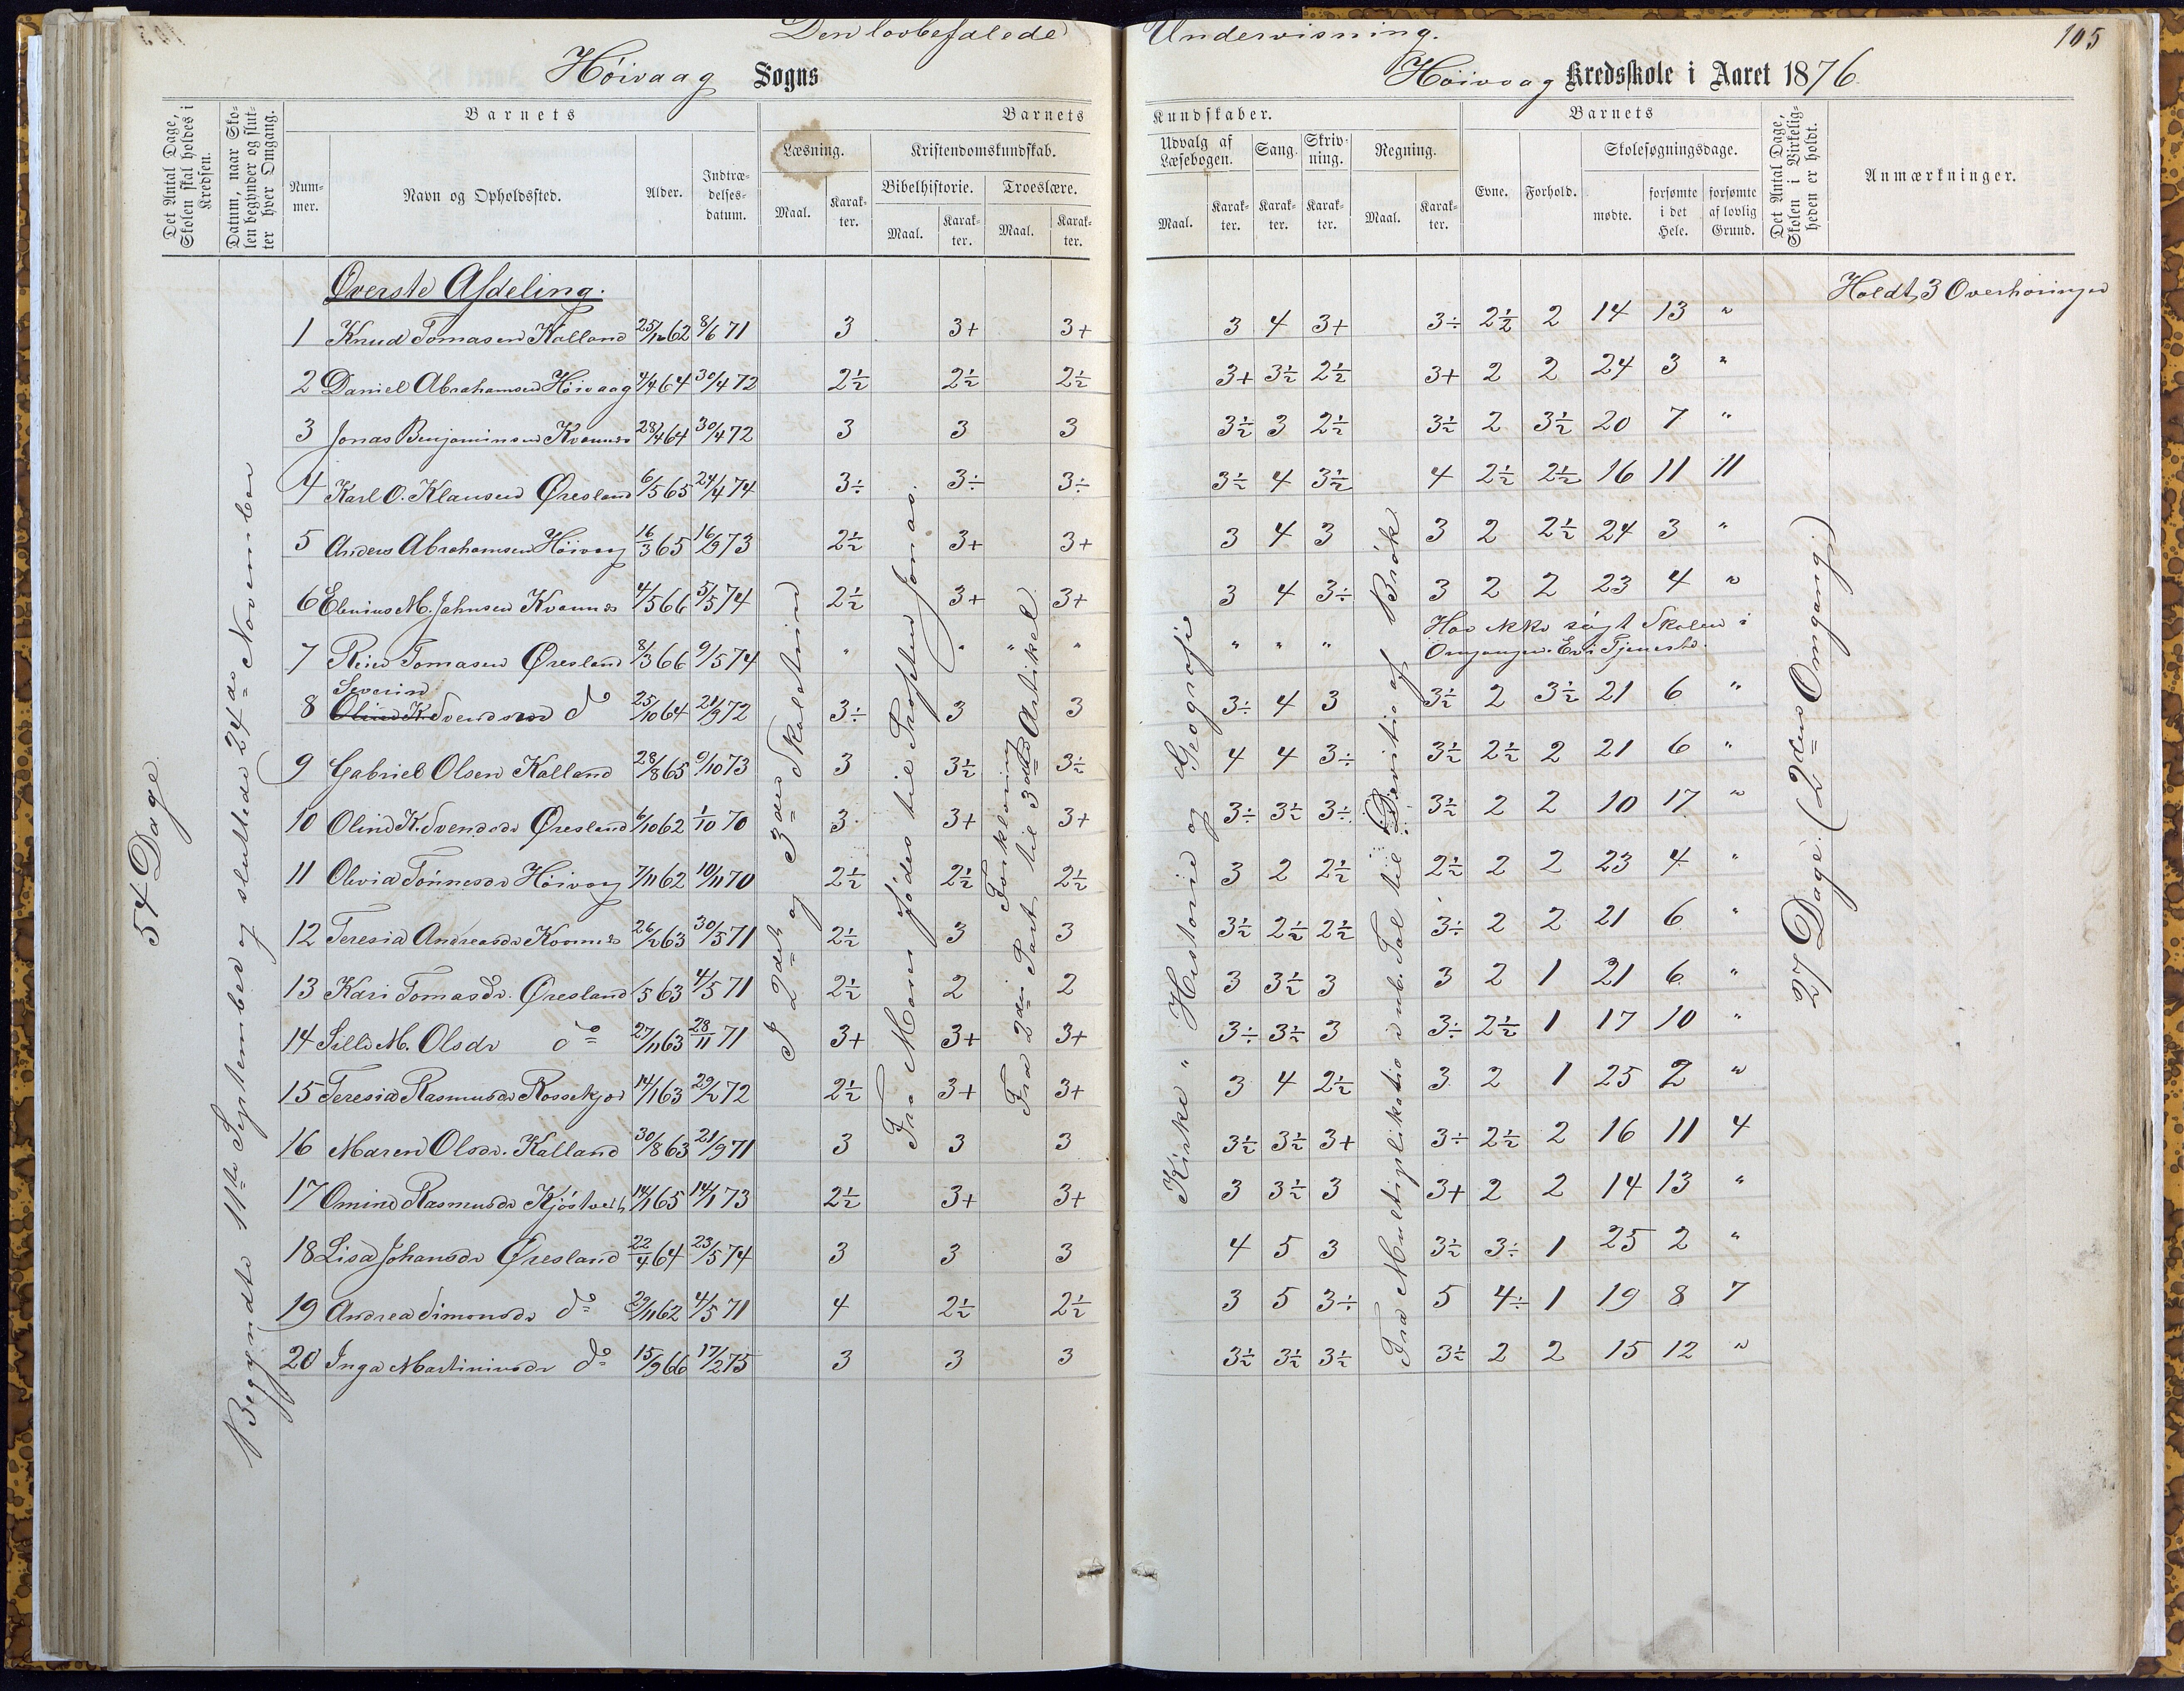 Den lovbefalede Undervisning.
105
Höivaag Sogns Höivaag Kredsskole i Aaret 1876.
Det Antal Dage, Skolen skal holdes i Kredsen.
Datum, naar Skolen begynder og slutter hver Omgang.
Barnets
Barnets Kundskaber.
Barnets
Det Antal Dage, Skolen i Virkeligheden er holdt.
Anmærkninger.
Læsning. Kristendomskundskab. Udvalg af Læsebogen. Sang. Skrivning. Regning. Evne. Forhold. Skolesøgningsdage.
Nummer. Navn og Opholdssted. Alder. Indtrædelsesdatum. Bibelhistorie. Troeslære.
Maal. Karakter. Maal. Karakter. Maal. Karakter. Maal. Karakter. Karakter. Karakter. Maal. Karakter. mødte. forsømte i det Hele. forsømte af lovlig Grund.
Øverste Afdeling.
Holdt 3 Overhøringer
1 Knud Tomasen Kalland 25/12 62 8/6 71 3 3+ 3+ 3 4 3+ 3÷ 2½ 2 14 13 "
2 Daniel Abrahamsen Höivaag 4/4 64 30/4 72 2½ 2½ 2½ 3+ 3½ 2½ 3+ 2 2 24 3 "
3 Jonas Benjaminsen 28/4 64 30/4 72 3 3 3 3½ 3 2½ 3½ 2 3½ 20 7 "
4 Karl O. Klausen Øresland 6/5 65 24/4 74 3÷ 3÷ 3÷ 3½ 4 3½ 4 2½ 2½ 16 11 11
5 Anders Abrahamsen Höivaag 16/3 65 16/9 73 2½ 3+ 3+ 3 4 3 3 2 2½ 24 3 "
6 M. Jahnsen 4/5 66 5/5 74 2½ 3+ 3+ 3 4 3÷ 3 2 2 23 4 "
7 Tomasen Øresland 8/3 66 9/5 74 " " " " " " " Har ikke søgt Skolen i Omgangen. Er i Tjeneste.
8 Severin Svendsen do 25/10 64 21/9 72 3÷ 3 3 3÷ 4 3 3½ 2 3½ 21 6 "
9 Gabriel Olsen Kalland 28/8 65 9/10 73 3 3½ 3½ 4 4 3÷ 3½ 2½ 2 21 6 "
10 Oline K. Svendsdr Øresland 6/10 62 1/10 70 3 3+ 3+ 3÷ 3½ 3÷ 3½ 2 2 10 17 "
11 Olevia Tönnesdr Höivaag 7/11 62 10/11 70 2½ 2½ 2½ 3 2 2½ 2½ 2 2 23 4 "
12 Teresia Andreasdr 26/2 63 30/5 71 2½ 3 3 3½ 2½ 2½ 3÷ 2 2 21 6 "
13 Kari Tomasdr. Øresland /5 63 4/5 71 2½ 2 2 3 3½ 3 3 2 1 21 6 "
14 Sille M. Olsdr do 27/11 63 28/11 71 3+ 3+ 3+ 3÷ 3½ 3 3÷ 2½ 1 17 10 "
15 Teresia Rasmusdr 14/1 63 29/2 72 2½ 3+ 3+ 3 4 2½ 3 2 1 25 2 "
16 Maren Olsdr. Kalland 30/8 63 21/9 71 3 3 3 3½ 3½ 3+ 3÷ 2½ 2 16 11 4
17 Omine Rasmusdr 14/1 65 14/1 73 2½ 3+ 3+ 3 3½ 3 3+ 2 2 14 13 "
18 Lisa Johansdr Øresland 22/4 64 23/5 74 3 3 3 4 5 3 3½ 3÷ 1 25 2 "
19 Andrea Simonsdr do 29/11 62 4/5 71 4 2½ 2½ 3 5 3÷ 5 4÷ 1 19 8 7
20 Inga Martiniusdr do 15/9 66 17/2 75 3 3 3 3½ 3½ 3½ 3½ 2 2 15 12 "
54 Dage.
Begyndte 11te September og sluttede 24de November
I 2det og 3die Skoletrin
Fra Moses fødes til Profeten Jonas.
Forklaring
Fra 2den Part til 3die Artikel
Kirke " Historie og Geografi
Fra Multiplikation i ub. Tal til Division af Brök
27 Dage. (2den Omgang.)